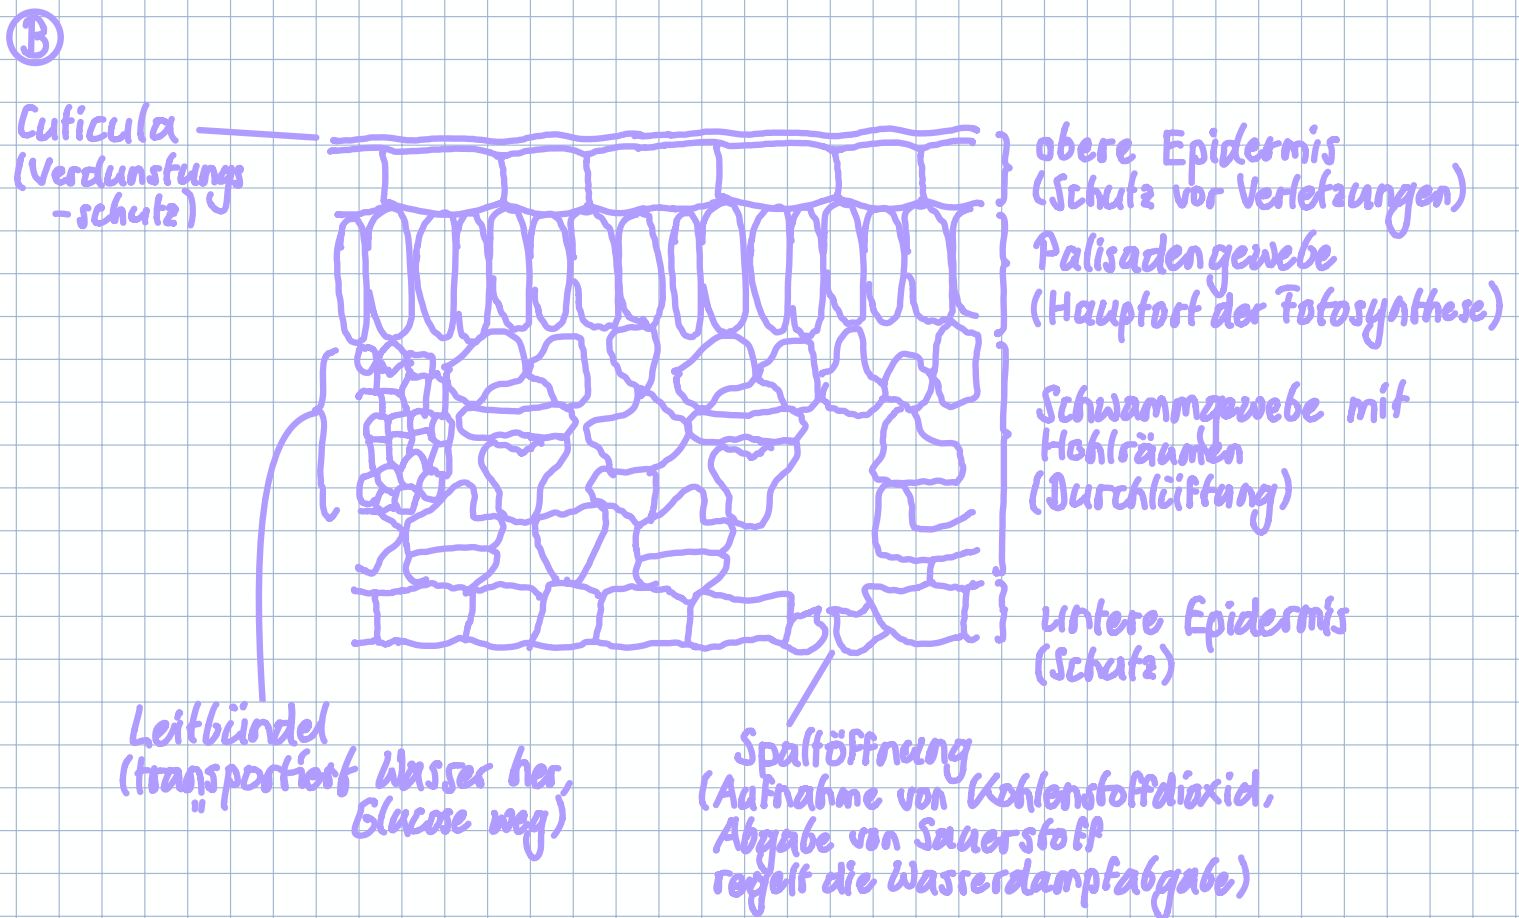 B
Cuticula
(Verdunstungs
-schutz)
obere Epidermis
(Schutz vor Verletzungen)
Palisadengewebe
(Hauptort der Fotosynthese)
Schwammgewebe mit
Hohlräumen
(Durchlüftung)
untere Epidermis
(Schutz)
Leitbündel
(transportiert Wasser her,
Glucose weg)
Spaltöffnung
(Aufnahme von Kohlenstoffdioxid,
Abgabe von Sauerstoff
regelt die Wasserdampfabgabe)